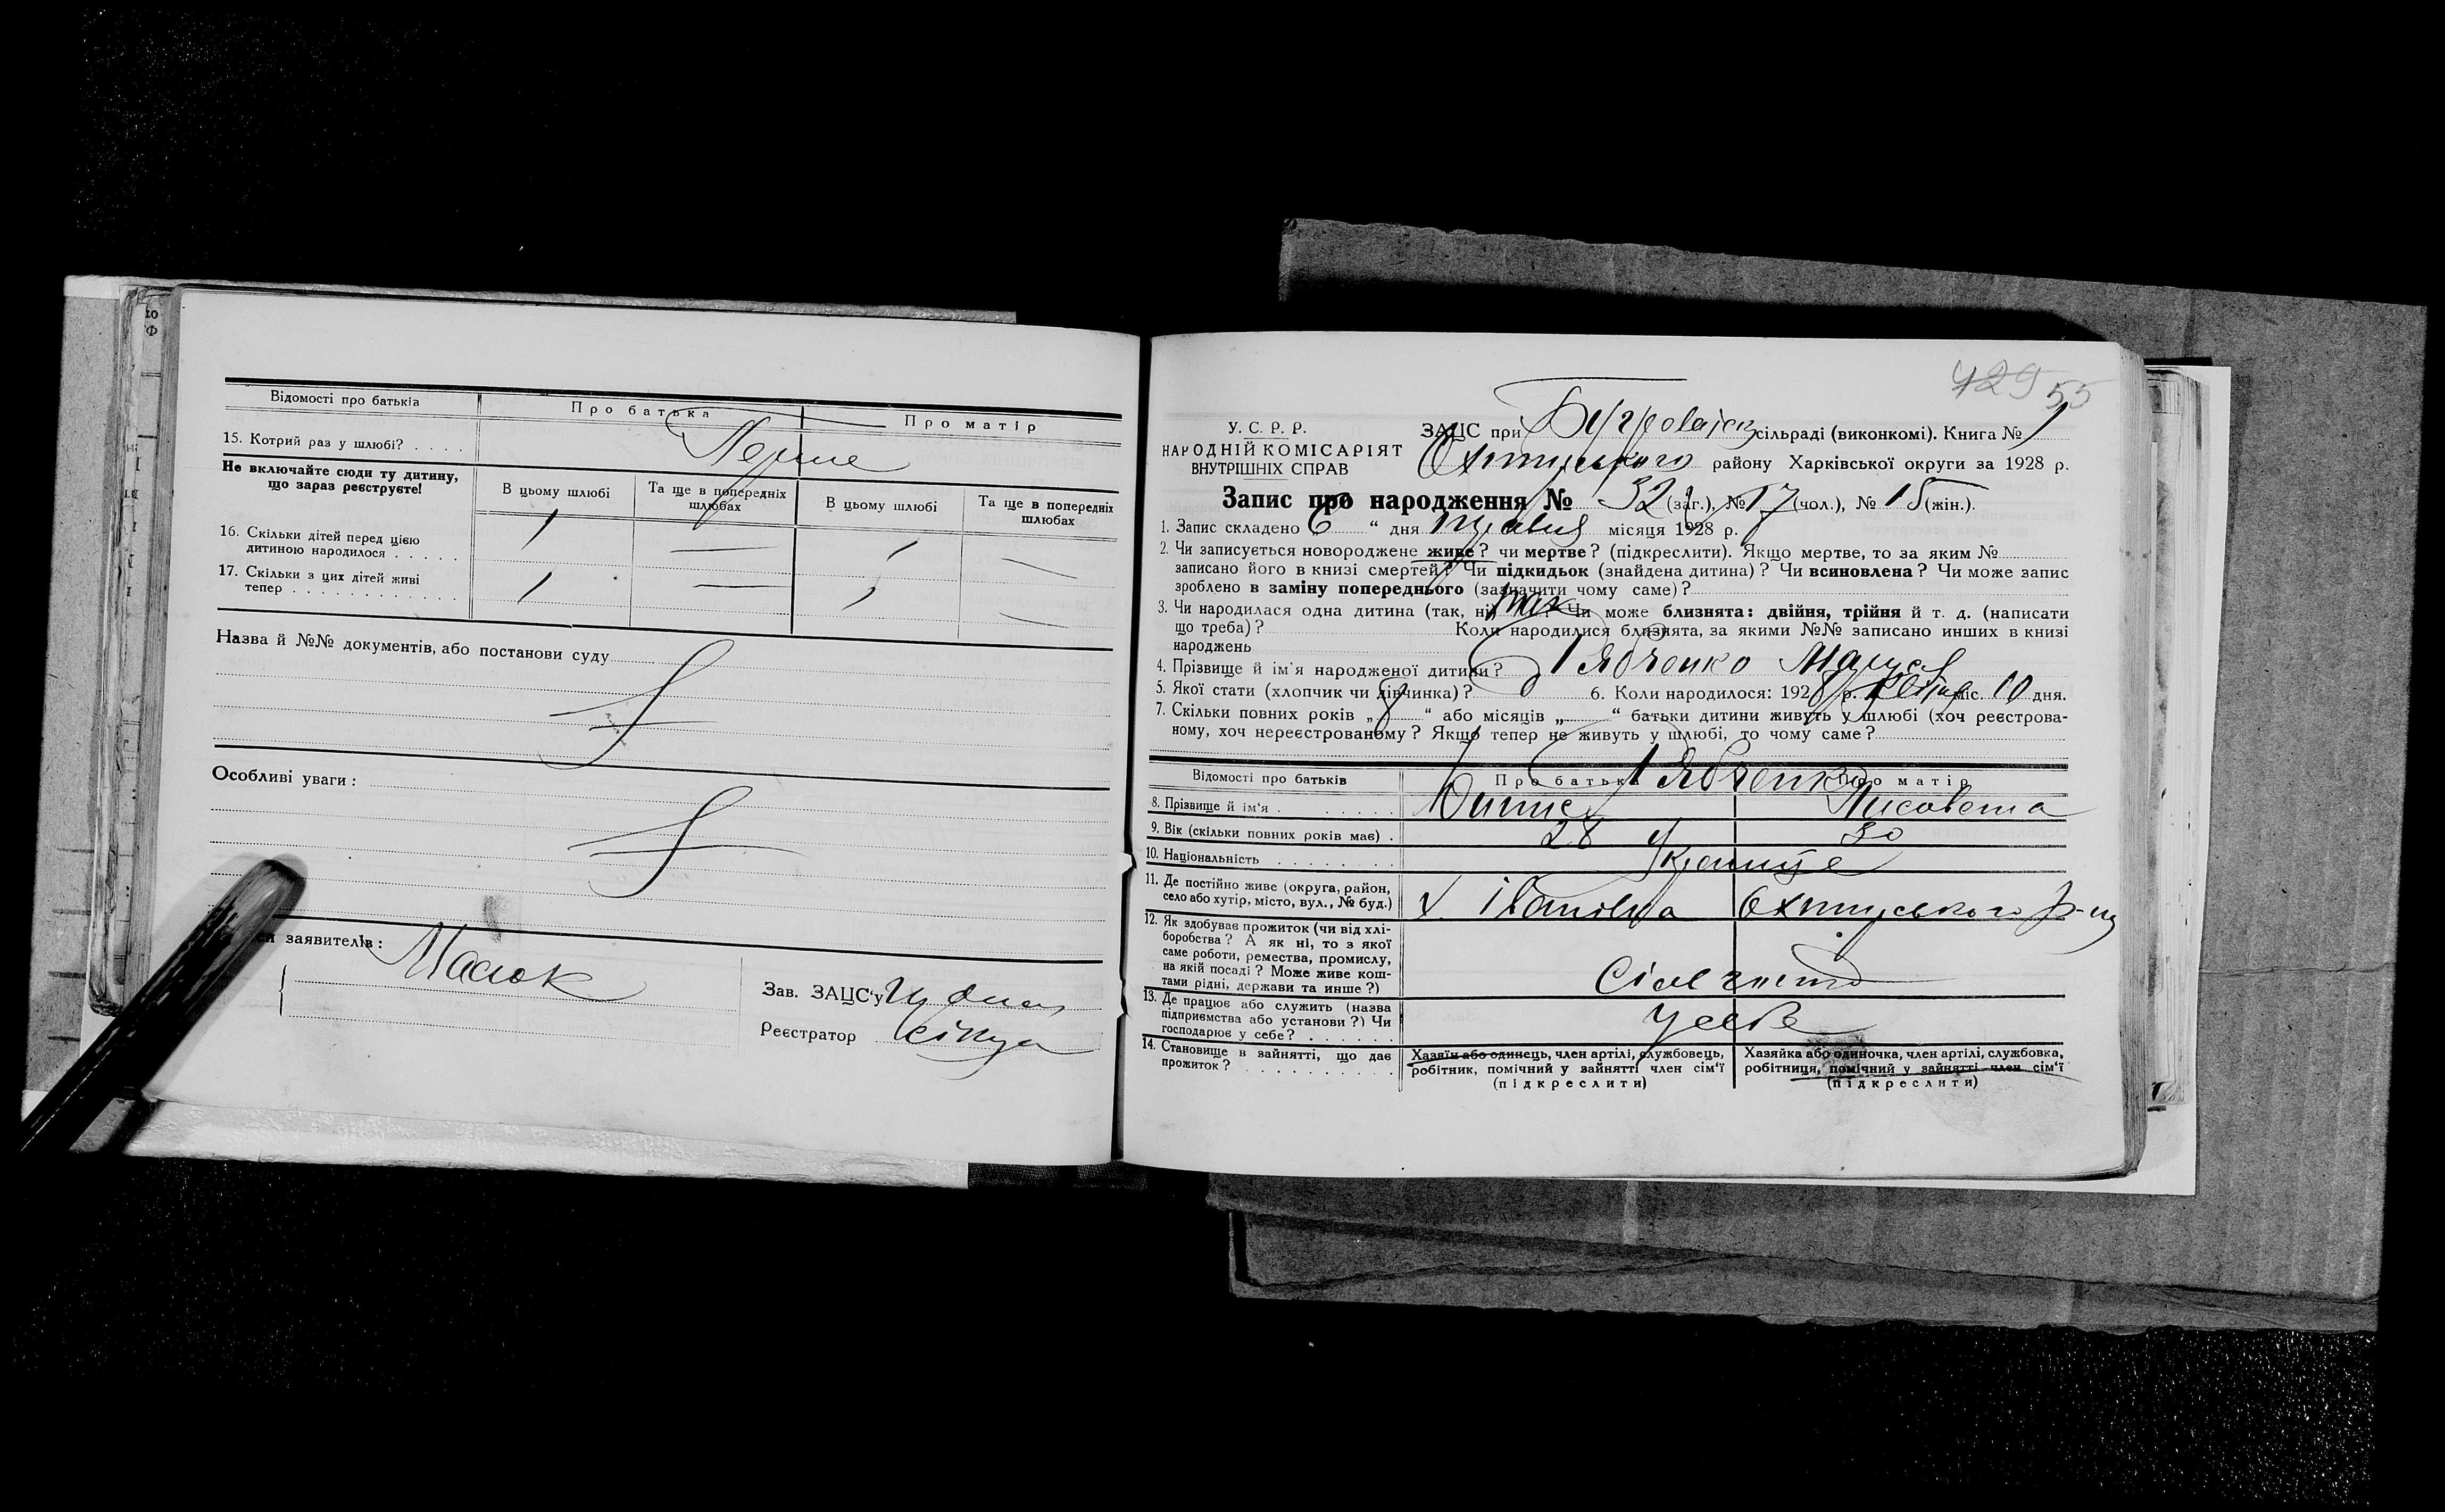 Відомості про батьків
Про батька
Про матір
15. Котрий раз у шлюбі? . . . .
Перше
Не включайте сюди ту дитину,
що зараз реєструєте!
В цьому шлюбі
Та ще в попередніх
шлюбах
В цьому шлюбі
Та ще в попередніх
шлюбах
16. Скільки дітей перед цією
дитиною народилося . . . . .
1 — 1 —
17. Скільки з цих дітей живі
тепер . . . . . . . . . . . .
1 — 1 —
Назва й №№ документів, або постанови суду
Особливі уваги:
заявителів:
Зав. ЗАЦС'у
Реєстратор
429 55
У. С. Р. Р.
НАРОДНІЙ КОМІСАРІЯТ
ВНУТРІШНІХ СПРАВ
ЗАЦС при сільраді (виконкомі). Книга № 1
району Харківської округи за 1928 р.
Запис про народження № 32 (заг.), № 17 (чол.), № 15 (жін.).
1. Запис складено „ 6 “ дня травня місяця 1928 р.
2. Чи записується новороджене живе? чи мертве? (підкреслити). Якщо мертве, то за яким №
записано його в книзі смертей? Чи підкидьок (знайдена дитина)? Чи всиновлена? Чи може запис
зроблено в заміну попереднього (зазначити чому саме)?
3. Чи народилася одна дитина (так, ні) так ? Чи може близнята: двійня, трійня й т. д. (написати
що треба)? Коли народилися близнята, за якими №№ записано инших в книзі
народжень
4. Прізвище й ім'я народженої дитини? Рябченко Маруся
5. Якої стати (хлопчик чи дівчинка)? 6. Коли народилось: 1928 р. квітня міс. 10 дня.
7. Скільки повних років „ “ або місяців „ “ батьки дитини живуть у шлюбі (хоч реєстрова-
ному, хоч нереєстрованому? Якщо тепер не живуть у шлюбі, то чому саме?
Відомості про батьків
Про батька
Про матір
Рябченко
8. Прізвище й ім'я . . . . . .
Лисовета
9. Вік (скільки повних років має) .
28 30
10. Національність . . . . . . . .
11. Де постійно живе (округа, район,
село або хутір, місто, вул., № буд.)
х. Іванівка
12. Як здобуває прожиток (чи від хлі-
боробства? А як ні, то з якої
саме роботи, ремества, промислу,
на якій посаді? Може живе кош-
тами рідні, держави та инше?)
13. Де працює або служить (назва
підприємства або установи?) Чи
господарює у себе? . . . . . .
У себе
14. Становище в зайнятті, що дає
прожиток? . . . . . . . . . .
Хазяїн або одинець, член артілі, службовець,
робітник, помічний у зайнятті член сім'ї
(підкреслити)
Хазяйка або одиночка, член артілі, службовка,
робітниця, помічний у зайнятті член сім'ї
(підкреслити)